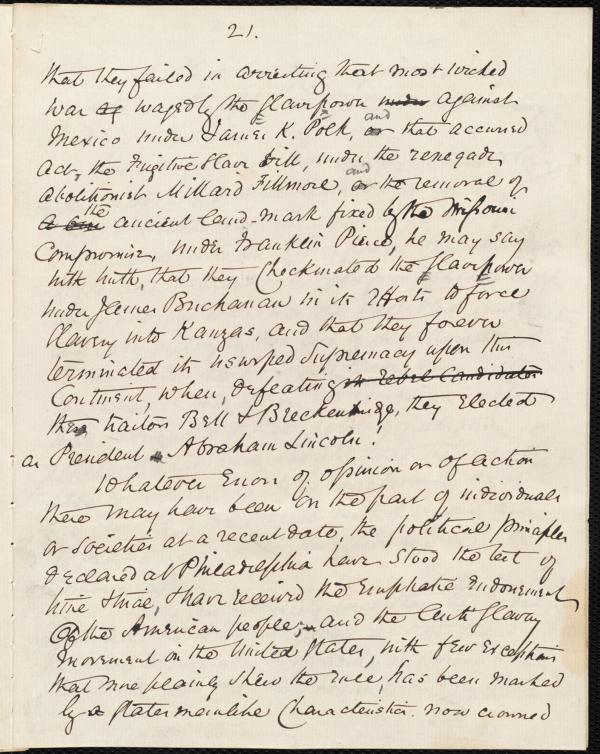 21.
that they failed in arresting that most wicked
war waged by the Slavepower against
Mexico under James K. Polk, and that accursed
act, the Fugitive Slave bill, under the renegade
abolitionist Millard Fillmore, and the removal of
the ancient land-mark fixed by the Missouri
Compromise, under Franklin Pierce, he may say
with truth, that they Checkmated the Slavepower
under James Buchanan in its efforts to force
Slavery into Kanzas, and that they forever
terminated its usurped Supremacy upon this
Continent, when, defeating in rebel Candidates
the traitors Bell & Breckenridge, they elected
as President Abraham Lincoln!
Whatever Errors of opinion or of action
there may have been on the part of individuals
or societies at a recent date, the political principles
declared at Philadelphia have stood the test of
time & trial, & have received the Emphatic Endorsement
of the American people; and the Anti Slavery
movement in the United States, with few exceptions
that more plainly shew the rule, has been marked
by a Statesmanlike Characteristic. now crowned